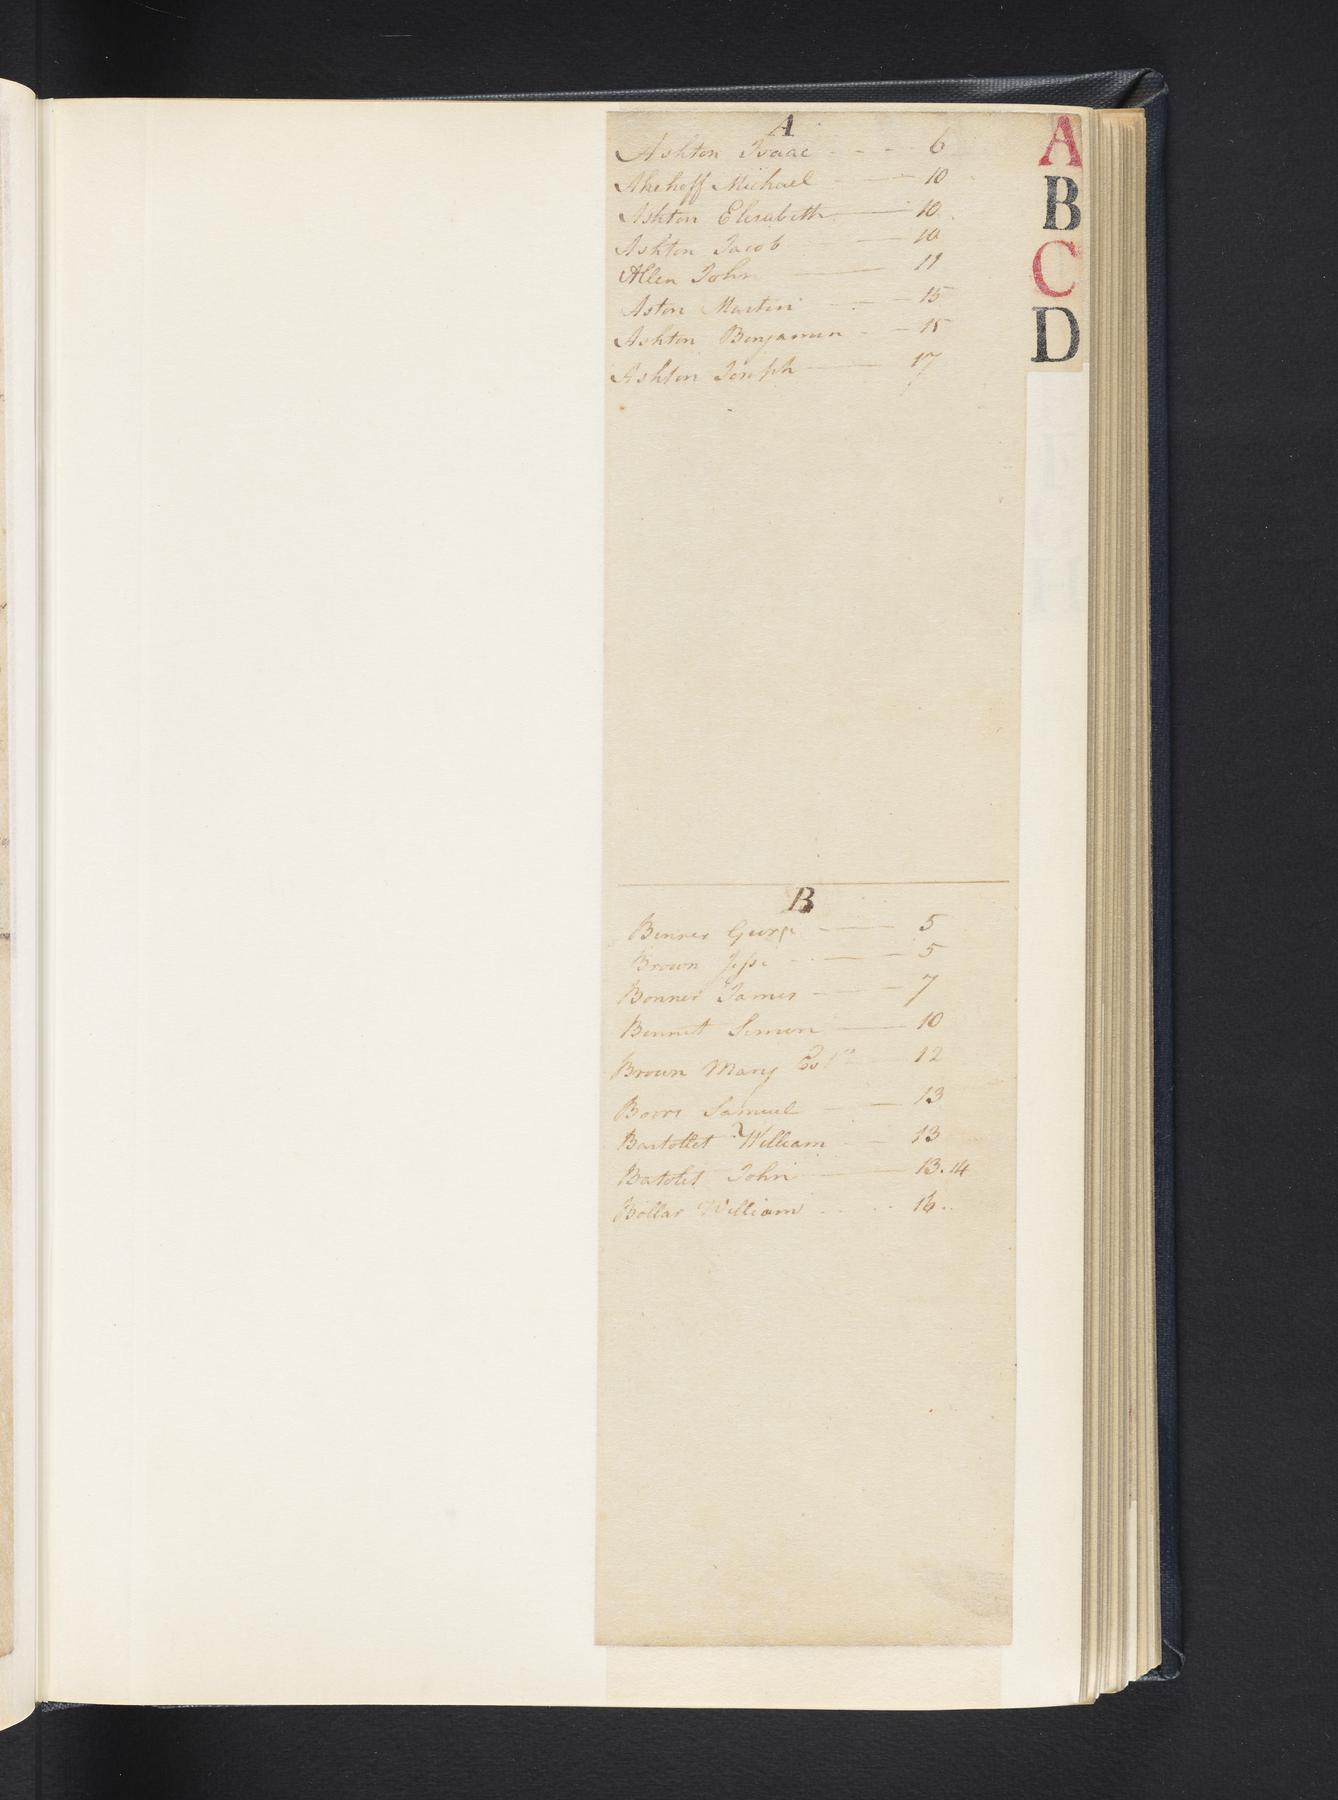 A
Ashton Isaac - - - 6
Akehoff Michael - 10
Ashton Elisabeth - 10
Ashton Jacob - 10
Allen John - 11
Aston Martin - 15
Ashton Benjamin - 15
Ashton Joseph - 17
B
Benner George - 5
Brown Jesse - 5
Bonner James - 7
Bennet Simon - 10
Brown Mary - 12
Boors Samuel - 13
Bartollet William - 13
Batolet John - 13.14
Bollar William - 16..
A
B
C
D